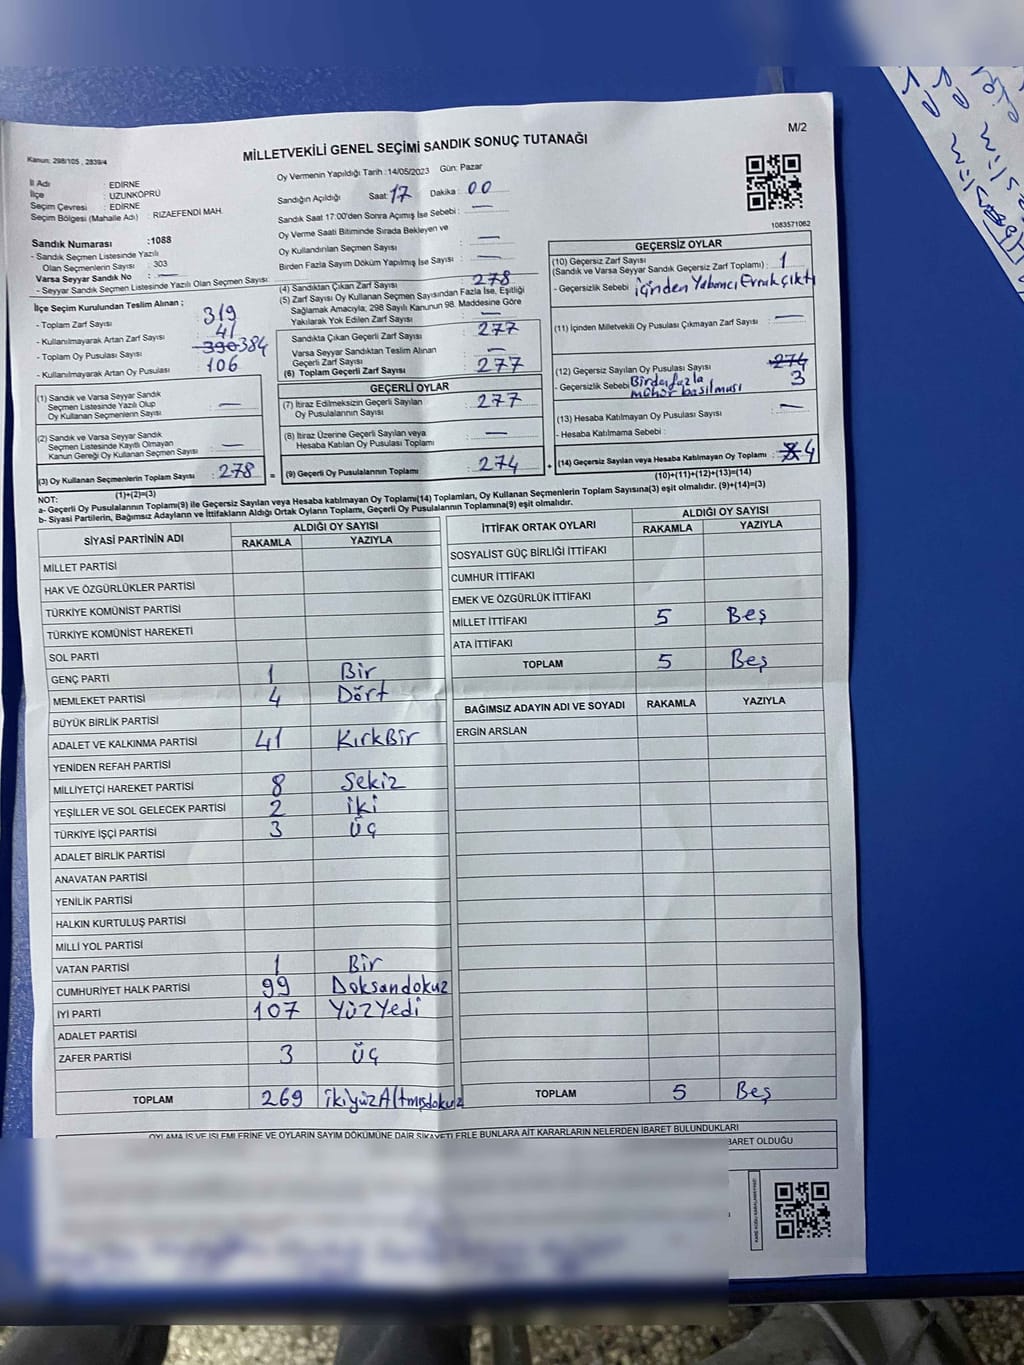 MİLLETVEKİLİ GENEL SEÇİMİ SANDIK SONUÇ TUTANAĞI
M/2
Kanun: 298/105 , 2839/4
İl Adı : EDİRNE
İlçe : UZUNKÖPRÜ
Seçim Çevresi : EDİRNE
Seçim Bölgesi (Mahalle Adı) : RIZAEFENDİ MAH.
Sandık Numarası :1088
- Sandık Seçmen Listesinde Yazılı
Olan Seçmenlerin Sayısı : 303
Varsa Seyyar Sandık No : —
- Seyyar Sandık Seçmen Listesinde Yazılı Olan Seçmen Sayısı :
İlçe Seçim Kurulundan Teslim Alınan ;
- Toplam Zarf Sayısı : 319
- Kullanılmayarak Artan Zarf Sayısı : 41
- Toplam Oy Pusulası Sayısı : 390 384
- Kullanılmayarak Artan Oy Pusulası : 106
(1) Sandık ve Varsa Seyyar Sandık
Seçmen Listesinde Yazılı Olup
Oy Kullanan Seçmenlerin Sayısı : —
(2) Sandık ve Varsa Seyyar Sandık
Seçmen Listesinde Kayıtlı Olmayan
Kanun Gereği Oy Kullanan Seçmen Sayısı : —
(3) Oy Kullanan Seçmenlerin Toplam Sayısı : 278
(1)+(2)=(3)
Oy Vermenin Yapıldığı Tarih :14/05/2023 Gün: Pazar
Sandığın Açıldığı Saat: 17 Dakika : 00
Sandık Saat 17:00'den Sonra Açımış İse Sebebi : —
Oy Verme Saati Bitiminde Sırada Bekleyen ve
Oy Kullandırılan Seçmen Sayısı : —
Birden Fazla Sayım Döküm Yapılmış İse Sayısı : —
(4) Sandıktan Çıkan Zarf Sayısı : 278
(5) Zarf Sayısı Oy Kullanan Seçmen Sayısından Fazla İse, Eşitliği
Sağlamak Amacıyla; 298 Sayılı Kanunun 98. Maddesine Göre
Yakılarak Yok Edilen Zarf Sayısı : —
Sandıkta Çıkan Geçerli Zarf Sayısı : 277
Varsa Seyyar Sandıktan Teslim Alınan
Geçerli Zarf Sayısı : —
(6) Toplam Geçerli Zarf Sayısı : 277
GEÇERLİ OYLAR
(7) İtiraz Edilmeksizin Geçerli Sayılan
Oy Pusulalarının Sayısı : 277
(8) İtiraz Üzerine Geçerli Sayılan veya
Hesaba Katılan Oy Pusulaları Toplamı : —
= (9) Geçerli Oy Pusulalarının Toplamı : 274
1083571062
GEÇERSİZ OYLAR
(10) Geçersiz Zarf Sayısı
(Sandık ve Varsa Seyyar Sandık Geçersiz Zarf Toplamı) : 1
- Geçersizlik Sebebi : içinden Yabancı Evrak çıktı
(11) İçinden Milletvekili Oy Pusulası Çıkmayan Zarf Sayısı : —
(12) Geçersiz Sayılan Oy Pusulası Sayısı : 274 3
- Geçersizlik Sebebi : Birden fazla
mühür basılması
(13) Hesaba Katılmayan Oy Pusulası Sayısı : —
- Hesaba Katılmama Sebebi :
+ (14) Geçersiz Sayılan veya Hesaba Katılmayan Oy Toplamı : 4
(10)+(11)+(12)+(13)=(14)
NOT:
a- Geçerli Oy Pusulalarının Toplamı(9) ile Geçersiz Sayılan veya Hesaba katılmayan Oy Toplamı(14) Toplamları, Oy Kullanan Seçmenlerin Toplam Sayısına(3) eşit olmalıdır. (9)+(14)=(3)
b- Siyasi Partilerin, Bağımsız Adayların ve İttifakların Aldığı Ortak Oyların Toplamı, Geçerli Oy Pusulalarının Toplamına(9) eşit olmalıdır.
SİYASİ PARTİNİN ADI ALDIĞI OY SAYISI
RAKAMLA YAZIYLA
MİLLET PARTİSİ
HAK VE ÖZGÜRLÜKLER PARTİSİ
TÜRKİYE KOMÜNİST PARTİSİ
TÜRKİYE KOMÜNİST HAREKETİ
SOL PARTİ
GENÇ PARTİ 1 Bir
MEMLEKET PARTİSİ 4 Dört
BÜYÜK BİRLİK PARTİSİ
ADALET VE KALKINMA PARTİSİ 41 KırkBir
YENİDEN REFAH PARTİSİ
MİLLİYETÇİ HAREKET PARTİSİ 8 Sekiz
YEŞİLLER VE SOL GELECEK PARTİSİ 2 iki
TÜRKİYE İŞÇİ PARTİSİ 3 Üç
ADALET BİRLİK PARTİSİ
ANAVATAN PARTİSİ
YENİLİK PARTİSİ
HALKIN KURTULUŞ PARTİSİ
MİLLİ YOL PARTİSİ
VATAN PARTİSİ 1 Bir
CUMHURİYET HALK PARTİSİ 99 Doksandokuz
İYİ PARTİ 107 YüzYedi
ADALET PARTİSİ
ZAFER PARTİSİ 3 Üç
TOPLAM 269 ikiyüzAltmışdokuz
İTTİFAK ORTAK OYLARI ALDIĞI OY SAYISI
RAKAMLA YAZIYLA
SOSYALİST GÜÇ BİRLİĞİ İTTİFAKI
CUMHUR İTTİFAKI
EMEK VE ÖZGÜRLÜK İTTİFAKI
MİLLET İTTİFAKI 5 Beş
ATA İTTİFAKI
TOPLAM 5 Beş
BAĞIMSIZ ADAYIN ADI VE SOYADI RAKAMLA YAZIYLA
ERGİN ARSLAN
TOPLAM 5 Beş
OYLAMA İŞ VE İŞLEMLERİNE VE OYLARIN SAYIM DÖKÜMÜNE DAİR ŞİKAYETLERLE BUNLARA AİT KARARLARIN NELERDEN İBARET BULUNDUKLARI
BARET OLDUĞU